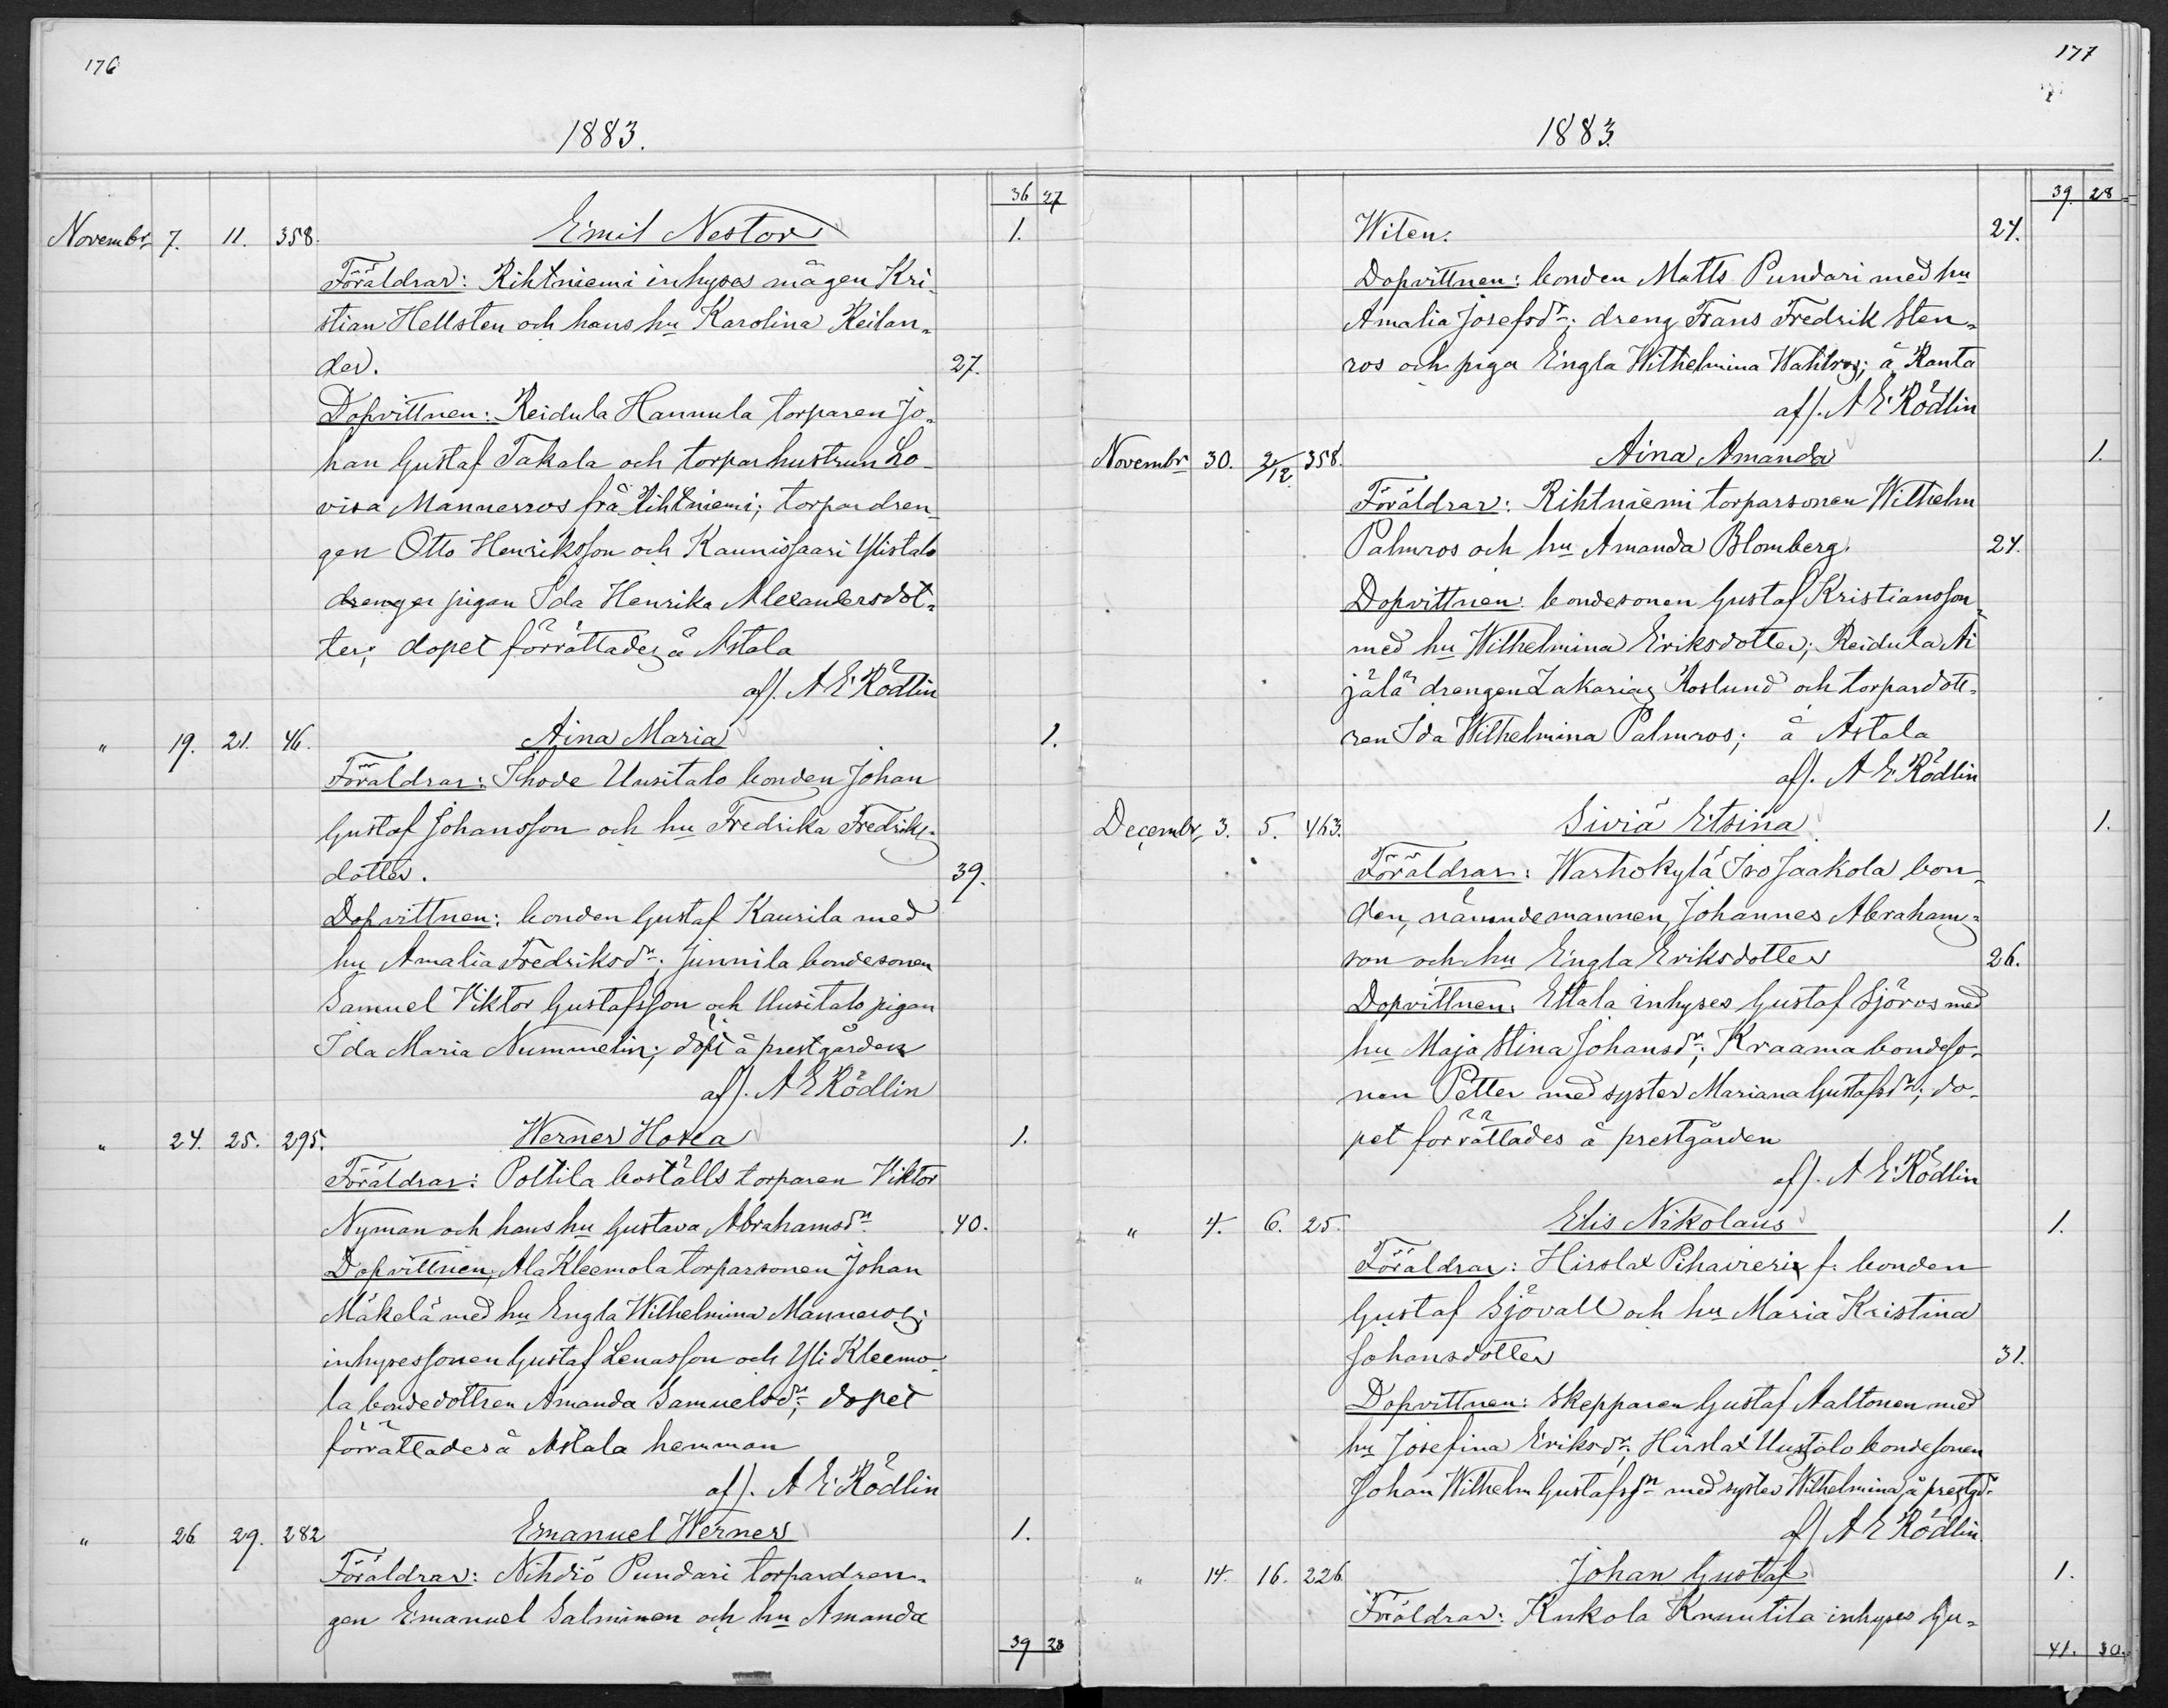 176
1883.
36 27
Novembr 7. 11. 358. Emil Nestor 1.
Föräldrar: Rihtniemi inhyses mågen Kri-
stian Hellsten och hans hu Karolina Keilan-
der. 27.
Dopvittnen: Reidula Hannula torparen Jo-
han Gustaf Takala och torparhustrun Lo-
visa Mannerros frå Rihtniemi; torpardren-
gen Otto Henriksson och Kaunissaari Ylistalo
drenger pigan Ida Henrika Alexandersdot-
ter; dopet förrättades å Astala
af). A E Rödlin
" 19. 21. 46. Aina Maria 1.
Föräldrar: Ihode Uusitalo bonden Johan
Gustaf Johansson och hu Fredrika Fredriks-
dotter. 39.
Dopvittnen: bonden Gustaf Kaurila med
hu Amalia Fredriksdr; Junnila bondesonen
Samuel Viktor Gustafsson och Uusitalo pigan
Ida Maria Nummelin; döpt å prestgården
af). A E Rödlin
" 24. 25. 295. Werner Hosea 1.
Föräldrar: Polttila boställs torparen Viktor
Nyman och hans hu Gustava Abrahamsdr 40.
Dopvittnen; Ala Kleemola torparsonen Johan
Mäkelä med hu Engla Wilhelmina Manneros;
inhysessonen Gustaf Lenasson och Yli Kleemo-
la bondedottren Amanda Samuelsdr; dopet
förrättades å Astala hemman
af). A E Rödlin
" 26 29. 282 Emanuel Werner 1.
Föräldrar: Nihdiö Pundari torpardren-
gen Emanuel Salminen och hu Amanda
39 28
177
1883.
39. 28
Witen. 24.
Dopvittnen: bonden Matts Pundari med hu
Amalia Josefsdr; dreng Frans Fredrik Sten-
ros och piga Engla Wilhelmina Wahlros; å Ranta
af). A E Rödlin
Novembr 30. 2/12 358. Aina Amanda 1.
Föräldrar: Rihtniemi torparsonen Wilhelm
Palmros och hu Amanda Blomberg. 24.
Dopvittnen: bondesonen Gustaf Kristiansson
med hu Wilhelmina Eriksdotter; Reidula Äi
jälä drengen Zakarias Roslund och torpardott-
ren Ida Wilhelmina Palmros; å Astala
af). A E Rödlin
Decembr 3. 5. 463. Siviä Etsina 1.
Föräldrar: Warhokylä Iso Jaakola bon-
den, nämndemannen, Johannes Abraham-
son och hu Engla Eriksdotter 26.
Dopvittnen: Ettala inhyses Gustaf Sjöros med
hu Maja Stina Johansdr; Kraama bondeso-
nen Petter med syster Mariana Gustafsdr; do-
pet förrättades å prestgården
af). A E Rödlin
" 4. 6. 25. Elis Nikolaus 1.
Föräldrar: Hirslax Pihavieri f. bonden
Gustaf Sjövall och hu Maria Kristina
Johansdotter 31.
Dopvittnen: Skepparen Gustaf Aaltonen med
hu Josefina Eriksdr; Hirslax Uustalo bondesonen
Johan Wilhelm Gustafsson med syster Wilhelmina å prestgdn
af). A E Rödlin
" 14. 16. 226. Johan Gustaf 1.
Föräldrar: Kukola Knuutila inhyses Gu-
41. 30.